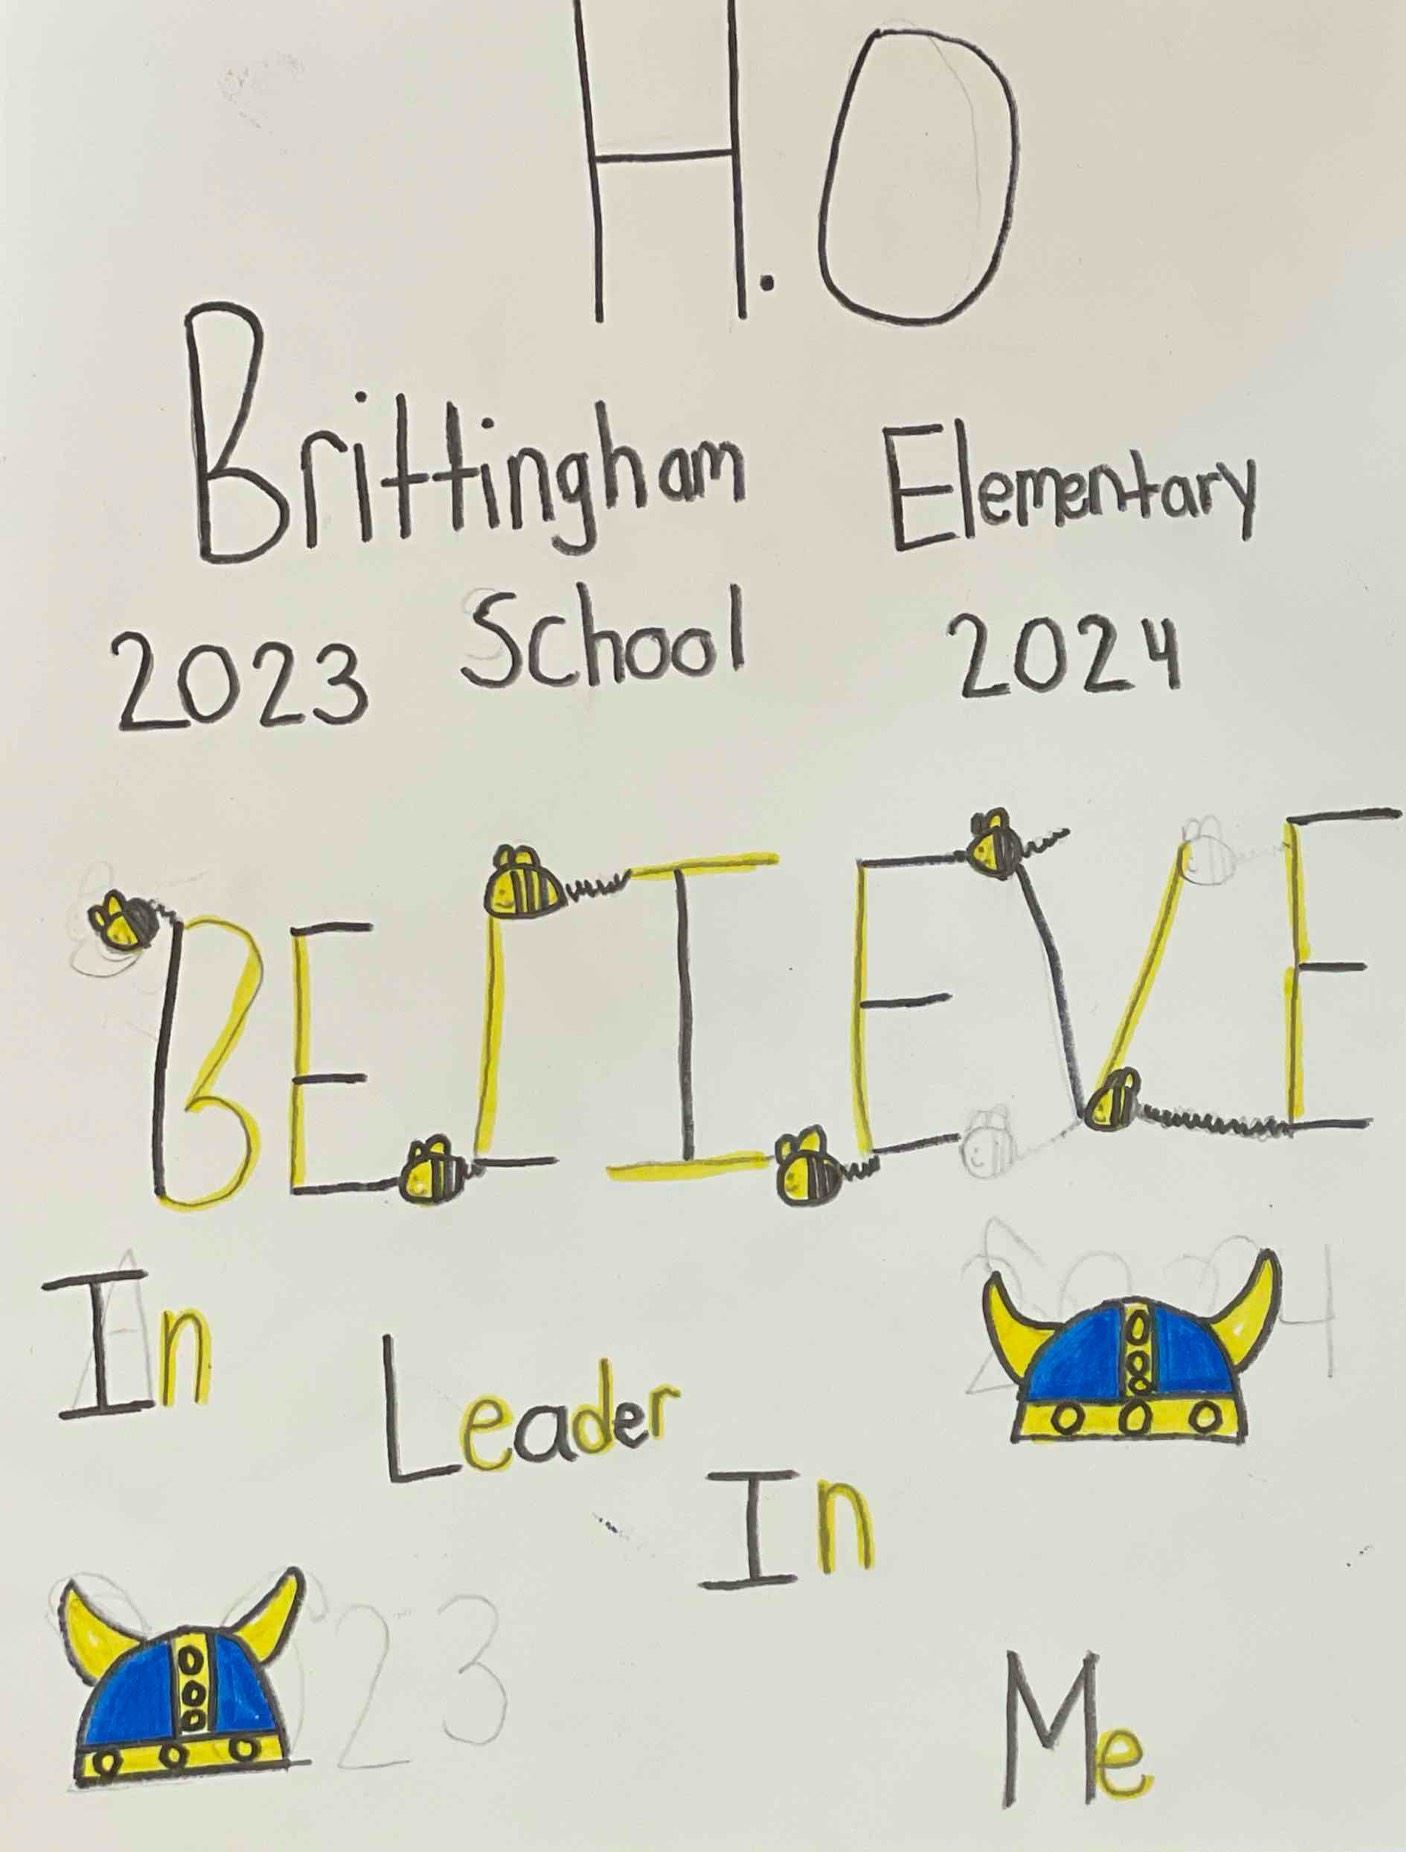 H.O
Brittingham Elementary
2023 School 2024
BELIEVE
In
Leader
In
Me